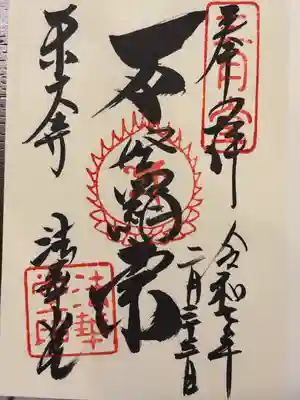 奉拝
三月堂
令和七年
二月二十三日
不空羂索
東大寺
法華堂
法華
堂印